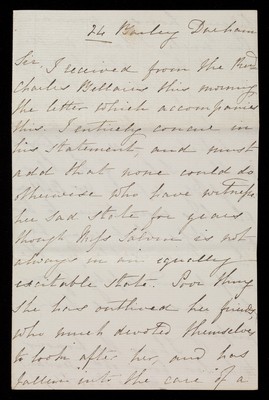 24 Bailey Durham
Sir
I received from the Revd
Charles Bellairs this morning
the letter which accompanies
this. I entirely concur in
his statement, and must
add that none could do
otherwise who have witness'd
her sad state for years
though Miss Salvin is not
always in an equally
excitable state. Poor thing
she has outlived her friends
who much devoted themselves
to look after her, and has
fallen into the care of a